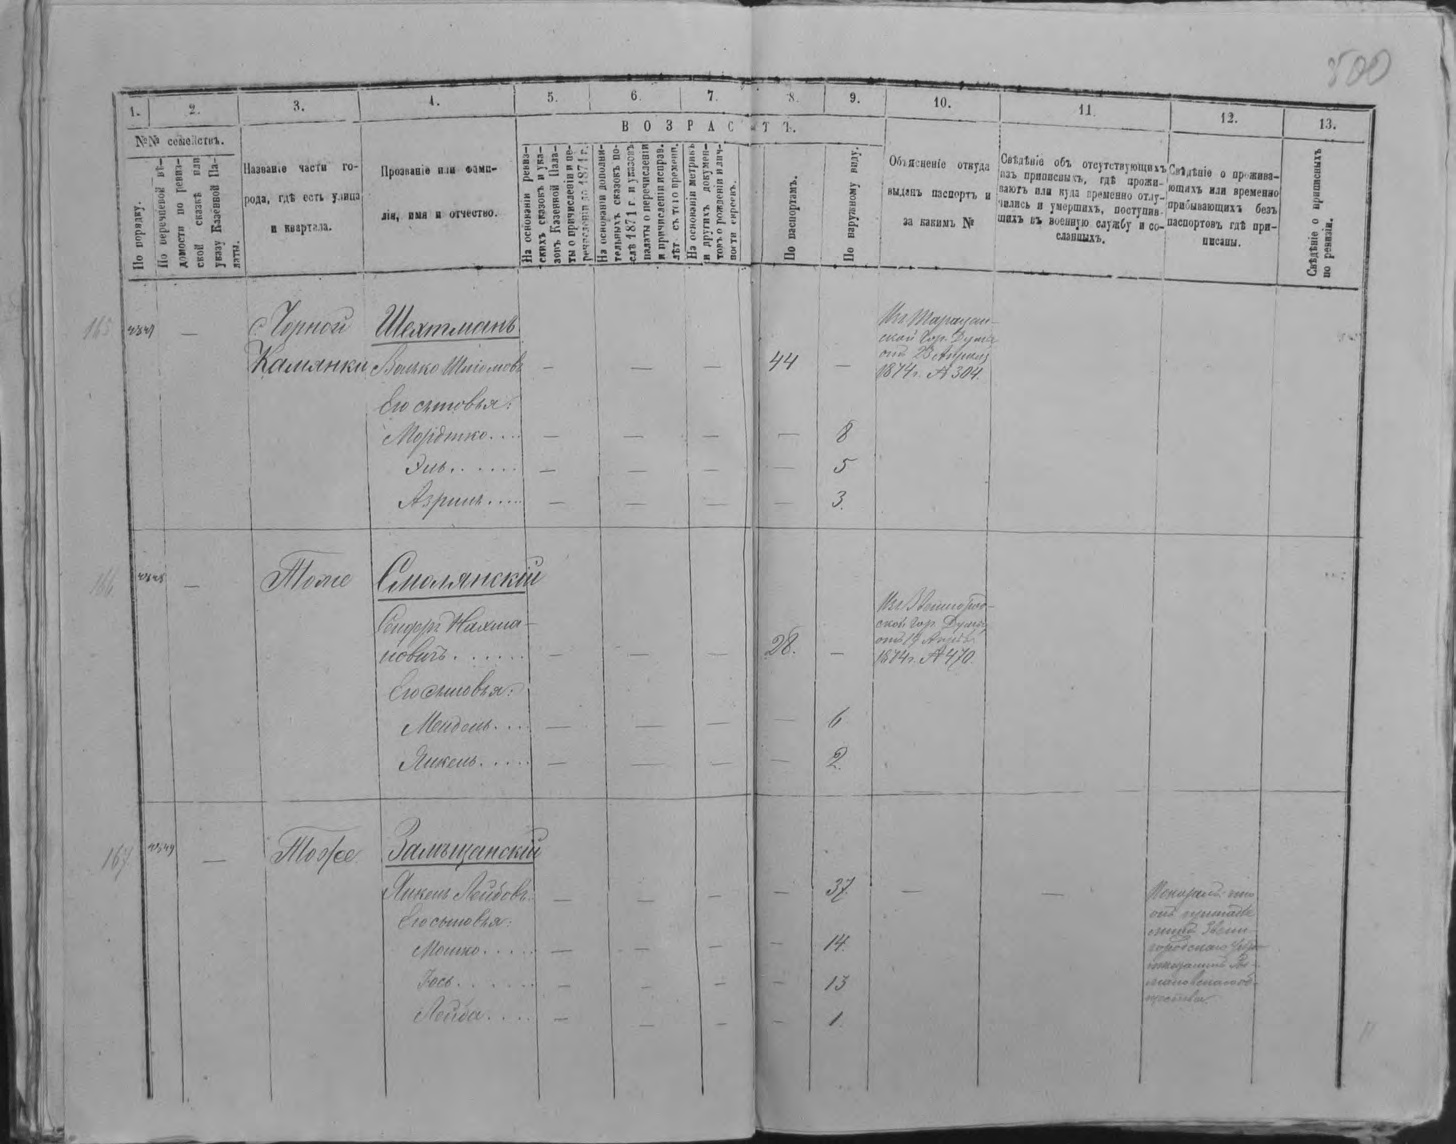 500
1.
2.
3.
4.
5.
6.
7.
8.
9.
10.
11.
12.
13.
№№ семействъ.
По порядку.
По перечневой вѣ-
домости по ревиз-
ской сказкѣ или
указу Казенной Па-
латы.
Названіе части го-
рода, гдѣ есть улица
и квартала.
Прозваніе или фами-
лія, имя и отчество.
ВОЗРАСТЪ.
На основаніи ревиз-
скихъ сказокъ и ука-
зовъ Казенной Пала-
ты о причисленіи и пе-
речисленіи до 1871 г.
На основаніи дополни-
тельныхъ сказокъ по-
слѣ 1871 г. и указовъ
палаты о перечисленіи
и причисленіи исправ.
лѣт. съ того времени.
На основаніи метрикъ
и другихъ докумен-
товъ о рожденіи и лич-
ности евреевъ.
По паспортамъ.
По наружному виду.
Объясненіе откуда
выденъ паспортъ и
за какимъ №
Свѣдѣніе объ отсутствующихъ
изъ приписныхъ, гдѣ прожи-
ваютъ или куда временно отлу-
чились и умершихъ, поступив-
шихъ въ военную службу и со-
сланныхъ.
Свѣдѣніе о прожива-
ющихъ или временно
прибывающихъ безъ
паспортовъ гдѣ при-
писаны.
Свѣдѣніе о приписныхъ
по ревизіи.
165
—
с. Чорной
Камянки
Шехтманъ
Волько Шліомовъ — — — 44 —
Изъ Таращан-
ской Гор. Думы
отъ 23 Апрѣля
1874 г. № 304.
Его сыновья:
Мордко.... — — — — 8
Эль...... — — — — 5
Азриль..... — — — — 3.
166
—
Тоже
Смолянскій
Сендеръ Нахма-
новичъ...... — — — 28. —
Изъ Звенигород-
ской Гор. Думы
отъ 19 Апрѣл.
1874 г. № 470.
Его сыновья:
Мендель.... — — — — 6
Янкель..... — — — — 2.
167
—
Тоже
Замѣщанскій
Янкель Лейбовъ. — — — — 37 — —
Его сыновья:
Мошко..... — — — — 14.
Іось...... — — — — 13
Лейба.... — — — — 1.